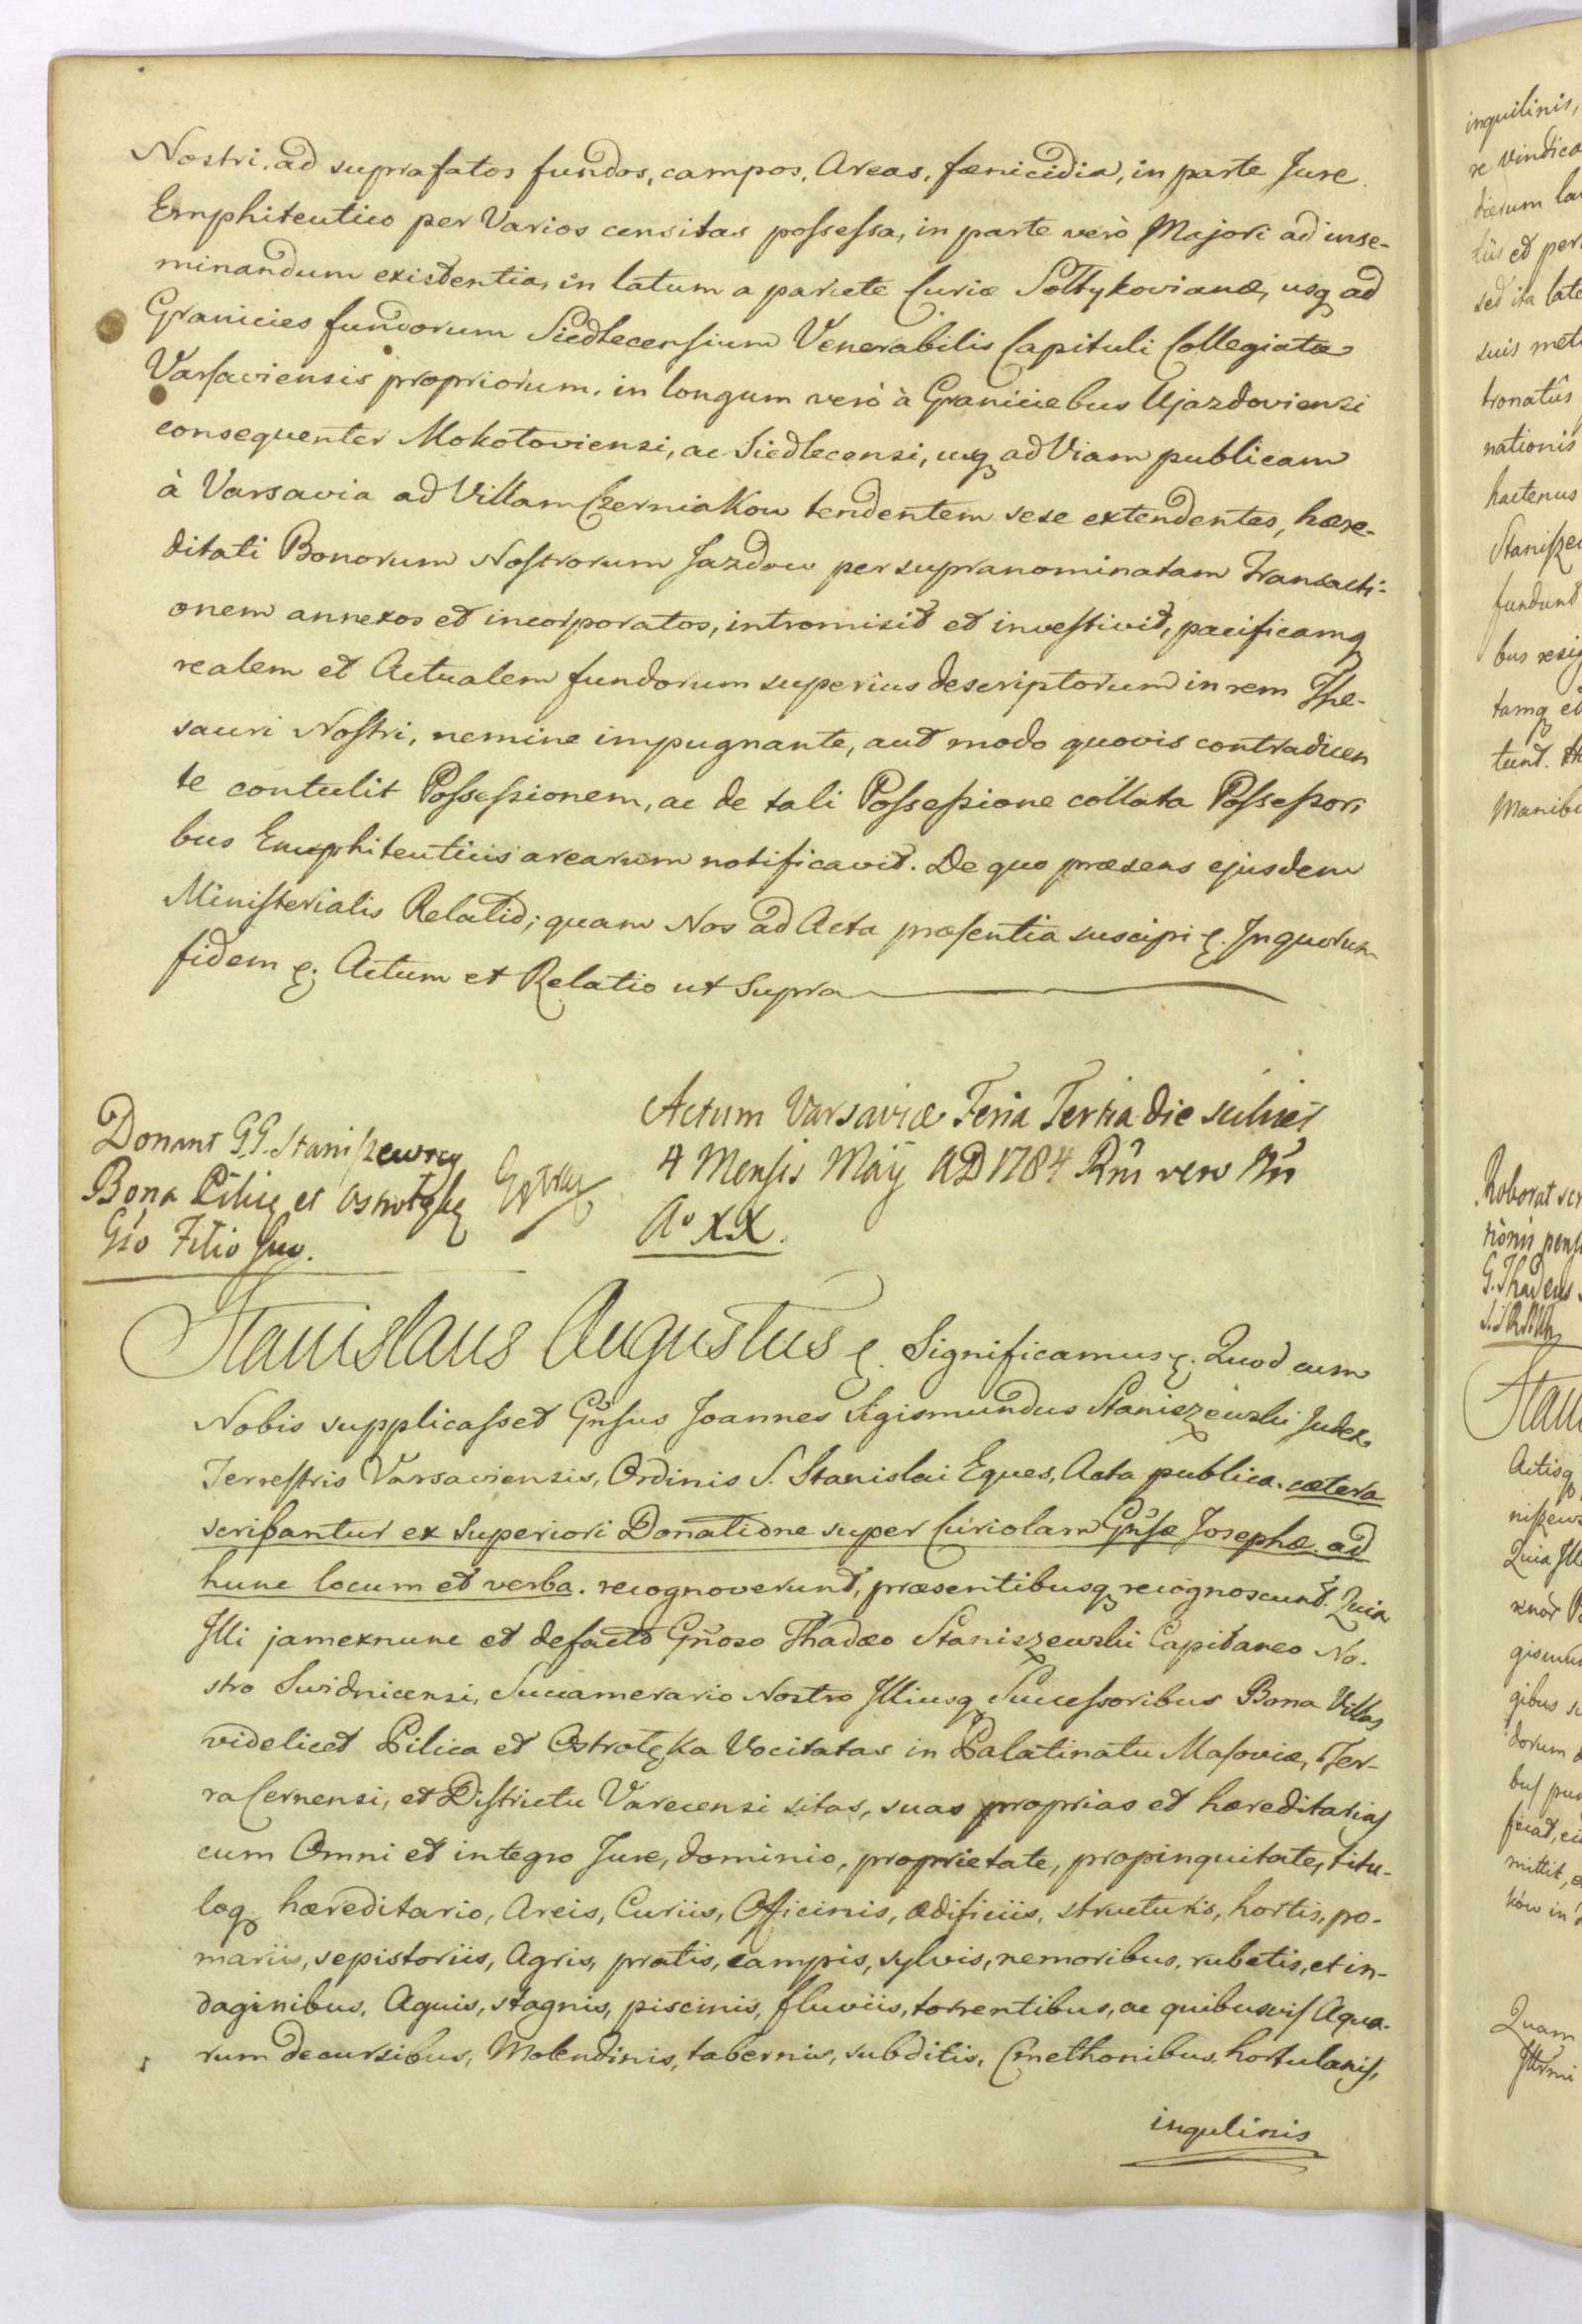 Nostri. ad suprafatos fundos, campos, Areas, fænicidia, in parte Jure
Emphiteutico per Varios censitas possessa, in parte verò Majori ad inse-
minandum existentia, in latum a pariete Curiæ Sołtykovianæ, usq ad
Granicies fundorum Siedlecensium Venerabilis Capituli Collegiatæ
Varsaviensis propriorum, in longum verò à Graniciebus Ujazdoviensi
consequenter Mokotoviensi, ac Siedlecensi, usq ad Viam publicam
à Varsavia ad Villam Czerniakow tendentem sese extendentes, hære-
ditati Bonorum Nostrorum Jazdow per supranominatam Transacti-
onem annexos et incorporatos, intromisit et investivit, pacificamq
realem et Actualem fundorum superius descriptorum in rem The-
sauri Nostri, nemine impugnante, aut modo quovis contradicen
te contulit Possessionem, ac de tali Possessione collata Possessori
bus Emphiteuticis arearum notificavit. De quo præsens ejusdem
Ministerialis Relatio; quam Nos ad Acta præsentia suscipi &. In quorum
fidem &. Actum et Relatio ut Supra
Donant G.G. Staniszewscy
Bona Pilicę et Ostrołękę
Gso Filio suo.
Actum Varsaviæ Feria Tertia die scilicet
4 Mensis Maij AD 1784 Rni vero Nri
Ao XX.
Stanislaus Augustus &. Significamus &. Quod cum
Nobis supplicasset Gnsus Joannes Sigismundus Staniszewski Judex
Terrestris Varsaviensis, Ordinis S. Stanislai Eques, Acta publica. cætera
scribantur ex Superiori Donatione super Curiolam Gnsæ Josephæ. ad
hunc locum et verba. recognoverunt, præsentibusq recognoscunt. Quia
Illi jamexnunc et defacto Gnoso Thadæo Staniszewski Capitaneo No-
stro Swidnicensi, Succamerario Nostro Illiusq Successoribus Bona Villas
videlicet Pilica et Ostrołęka Vocitatas in Palatinatu Masoviæ, Ter-
ra Cernensi, et Districtu Varecensi sitas, suas proprias et hæreditarias
cum Omni et integro Jure, dominio, proprietate, propinquitate, titu-
loq hæreditario, Areis, Curiis, Officinis, ædificiis, structuris, hortis, po-
mariis, sepistoriis, Agris, pratis, campis, sylvis, nemoribus, rubetis, et in-
daginibus, Aquis, stagnis, piscinis, fluviis, torrentibus, ac quibusvis Aqua-
rum decursibus, Molendinis, tabernis, subditis, Cmethonibus, hortulanis,
inqulinis